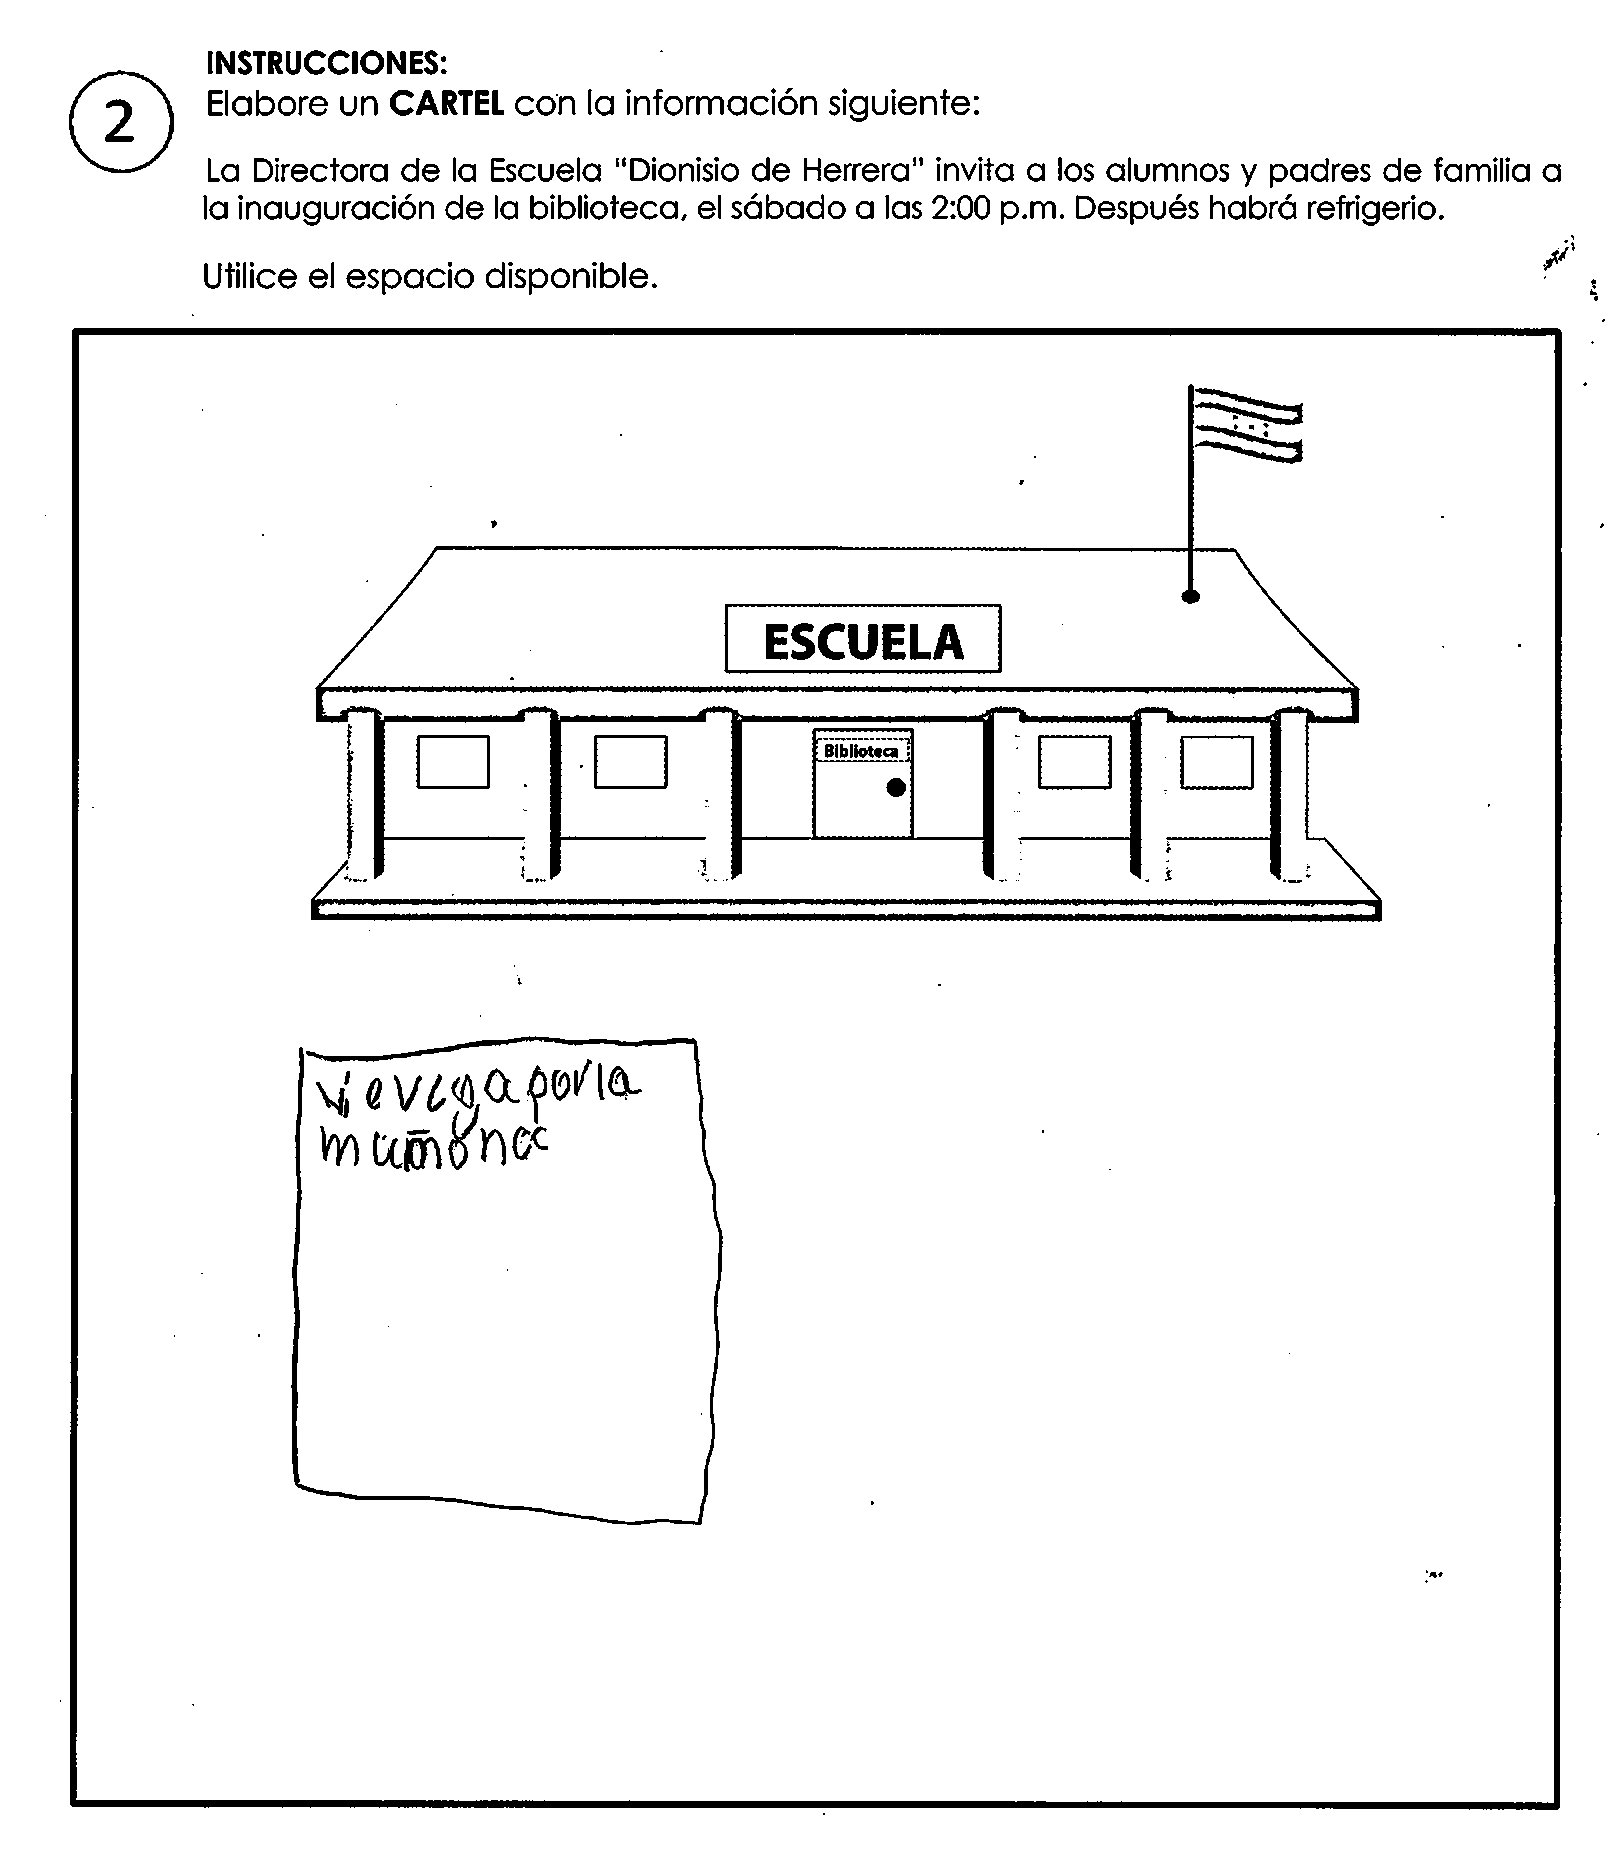 INSTRUCCIONES:
2
Elabore un CARTEL con la información siguiente:
La Directora de la Escuela "Dionisio de Herrera" invita a los alumnos y padres de familia a
la inauguración de la biblioteca, el sábado a las 2:00 p.m. Después habrá refrigerio.
Utilice el espacio disponible.
ESCUELA
Biblioteca
por la